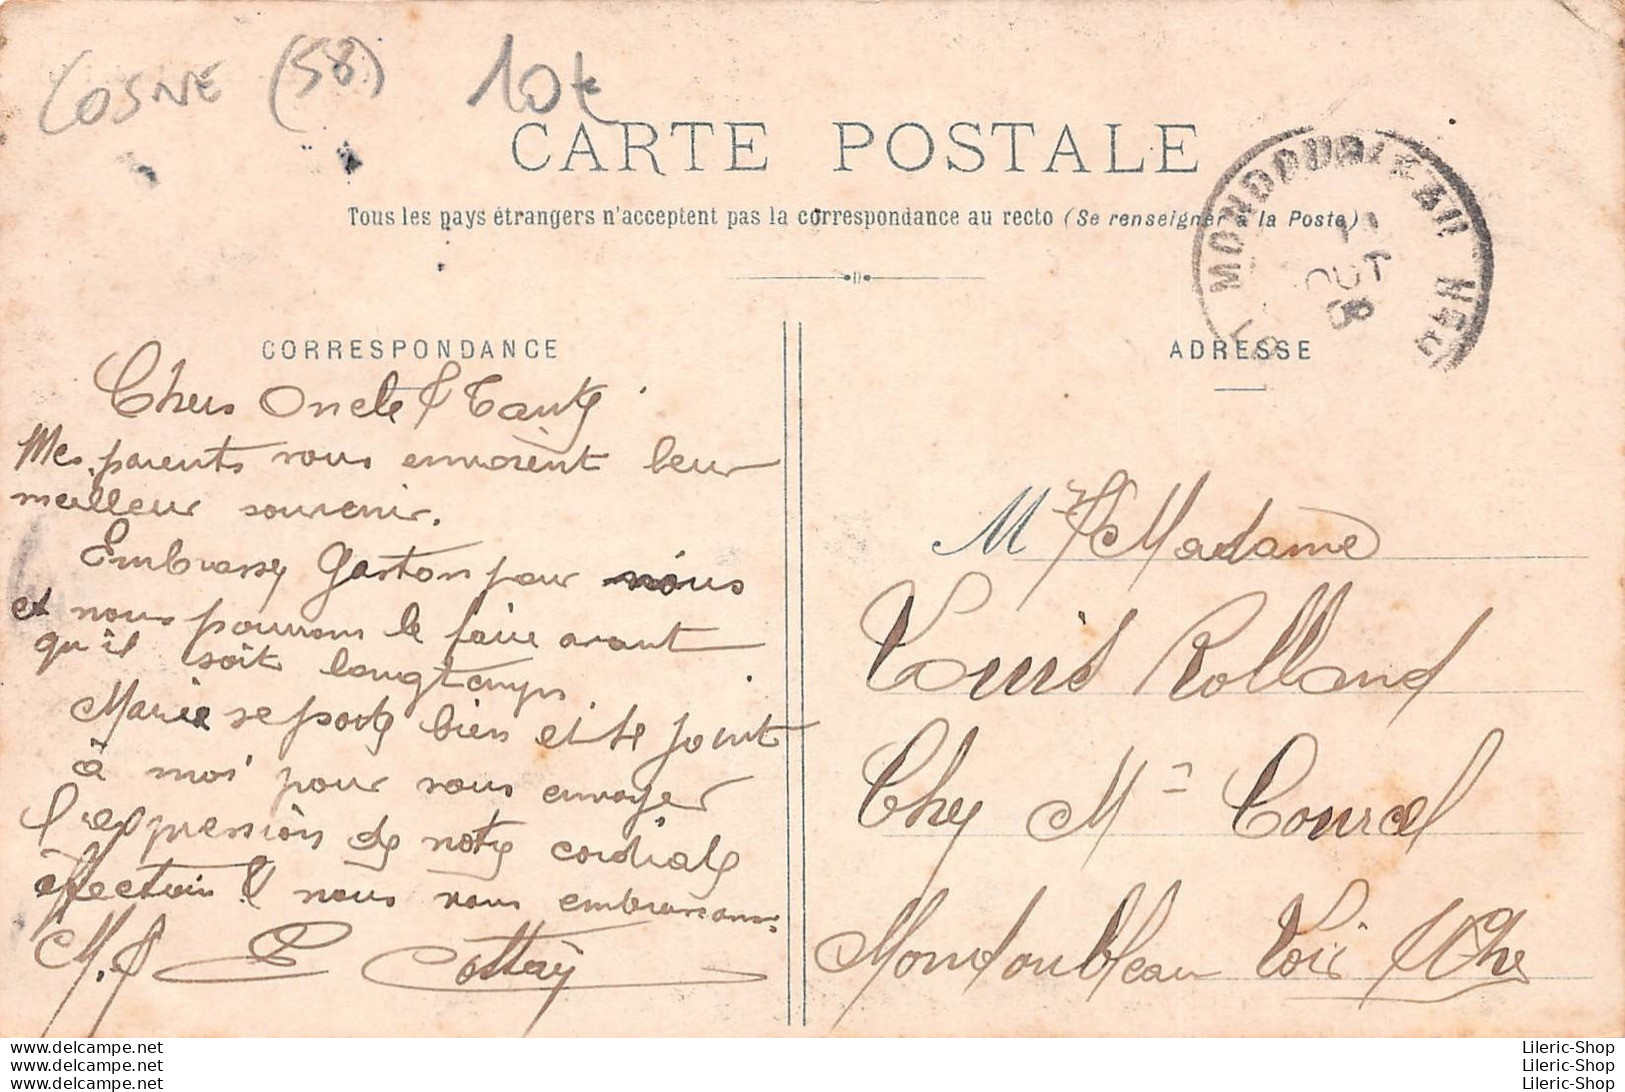 COSNE (58) 10€
CARTE POSTALE
Tous les pays étrangers n'acceptent pas la correspondance au recto (Se renseigner à la Poste)
MONDOUBLEAU
OCT
CORRESPONDANCE
Chers Oncle & Tante
Mes parents vous envoient leur
meilleur souvenir.
Embrassez Gaston pour nous
et nous pourrons le faire avant
qu'il soit longtemps.
Marie se porte bien et se joint
à moi pour vous envoyer
l'expression de notre cordiale
affection & nous vous embrassons.
M. & E Cottey
ADRESSE
Mr & Madame
Louis Rolland
Chez Mr Courcel
Mondoubleau Loir & Cher
www.delcampe.net Lileric-Shop
www.delcampe.net Lileric-Shop
www.delcampe.net Lileric-Shop